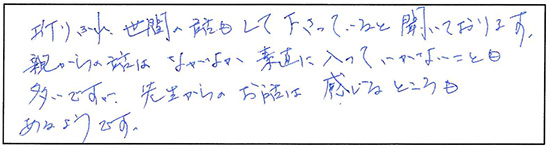 折りふれ、世間の話もして下さっていると聞いております。
親からの話はなかなか素直に入っていかないことも
多いですが、先生からのお話は感じるところも
あるようです。